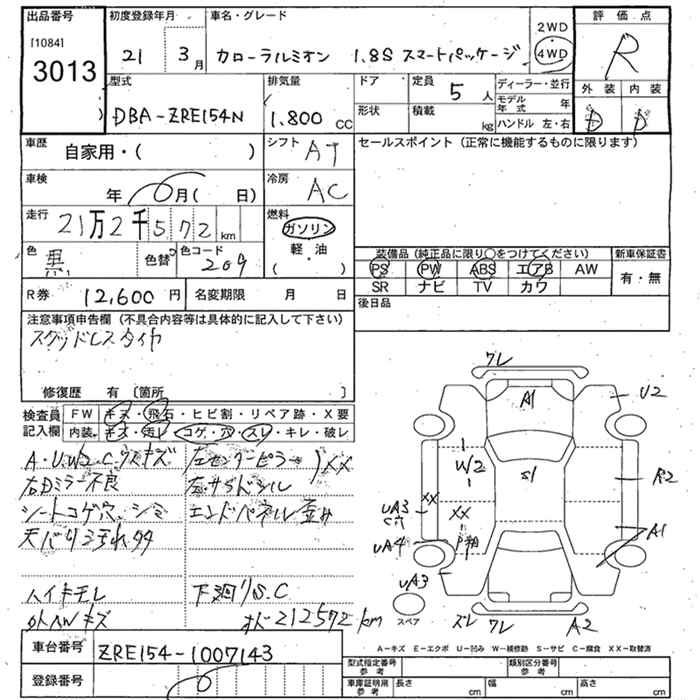 出品番号
[1084]
3013
初度登録年月
21 3月
車名・グレード
カローラルミオン 1.8S スマートパッケージ
2WD
4WD
評価点
R
外装 内装
D D
型式
DBA-ZRE154N
排気量
1.800 CC
ドア
定員 5人
形状
積載 kg
ディーラー・並行
モデル年式 年
ハンドル 左・右
車歴
自家用・( )
シフト AT
車検
年 月( 日)
冷房 AC
走行
21万2千572km
燃料
ガソリン
軽・油
( )
色 黒
色替
色コード 209
R券 12,600円
名変期限 月 日
セールスポイント(正常に機能するものに限ります)
装備品(純正品に限り○をつけてください)
PS PW ABS エアB AW
SR ナビ TV カワ
新車保証書
有・無
後日品
注意事項申告欄(不具合内容等は具体的に記入して下さい)
スタッドレスタイヤ
修復歴 有 〔箇所 〕
検査員記入欄
FW キズ・飛石・ヒビ割・リペア跡・X要
内装 キズ・汚れ・コゲ・穴・スレ・キレ・破レ
A・U.W.S.C.ウスキズ
右Dミラー不良
シートコゲ穴、シミ
天バリ汚れ
ハイキモレ
外AWキズ
左センターピラー XX
左サイドシル
エンドパネル歪み
下廻りS.C
オド212572km
ワレ
A1
U2
W2
S1
R2
XX
UA3
C穴
XX
A1
UA4
UA3
スペア
ズレ ワレ
A2
A-キズ E-エクボ U-凹み W-補修跡 S-サビ C-腐食 XX-取替済
車台番号 ZRE154-1007143
登録番号
型式指定番号 参考
類別区分番号 参考
車庫証明用 参考
長さ cm
幅 cm
高さ cm